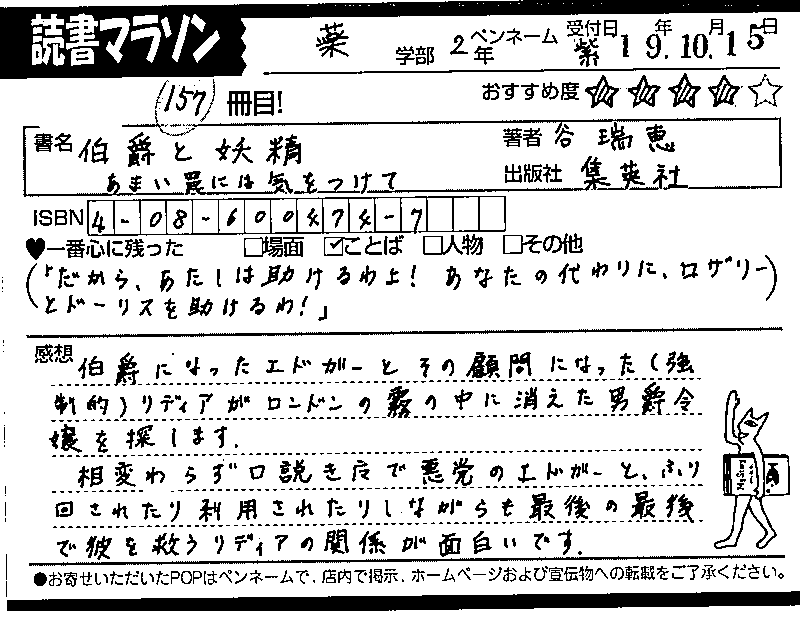 読書マラソン 薬 学部 2年 ペンネーム 紫 受付日 19年.10月.15日
(157) 冊目! おすすめ度 ★★★★☆
書名 伯爵と妖精 著者 谷 瑞恵
あまい罠には気をつけて 出版社 集英社
ISBN 4-08-600474-7
♥一番心に残った □場面 ☑ことば □人物 □その他
(「だから、あたしは助けるわよ! あなたの代わりに、ロザリー
とドーリスを助けるわ!」)
感想 伯爵になったエドガーとその顧問になった(強
制的)リディアがロンドンの霧の中に消えた男爵令
嬢を探します.
相変わらず口説き虎で悪党のエドガーと、ふり
回されたり利用されたりしながらも最後の最後
で彼を救うリディアの関係が面白いです.
●お寄せいただいたPOPはペンネームで、店内で掲示、ホームページおよび宣伝物への転載をご了承ください。